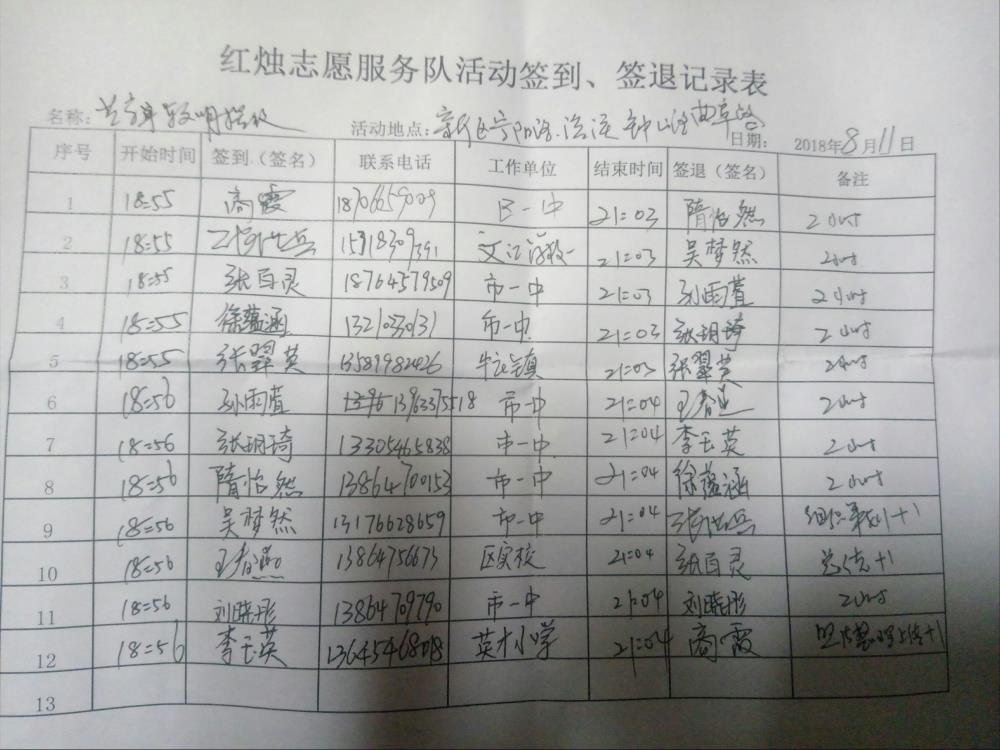 红烛志愿服务队活动签到、签退记录表
名称：
活动地点：
日期： 2018年8月11日
序号 开始时间 签到（签名） 联系电话 工作单位 结束时间 签退（签名） 备注
1 18:55 高霞 18706659009 区一中 21:03 隋怡然 2小时
2 18:55 21:03 吴梦然 2小时
3 18:55 张百灵 18764579509 市一中 21:03 孙雨萱 2小时
4 18:55 徐蕴涵 市一中 21:03 张玥琦 2小时
5 18:55 张翠英 13589982426 21:03 张翠英 2小时
6 18:56 孙雨萱 13963375518 市一中 21:04 2小时
7 18:56 张玥琦 13305465838 市一中 21:04 李玉英 2小时
8 18:56 隋怡然 13864700153 市一中 21:04 徐蕴涵 2小时
9 18:56 吴梦然 13176628659 市一中 21:04 +1
10 18:56 13864756673 区实校 21:04 张百灵 +1
11 18:56 刘晓彤 13864709790 市一中 21:04 刘晓彤 2小时
12 18:56 李玉英 13645468018 英才小学 21:04 高霞 +1
13